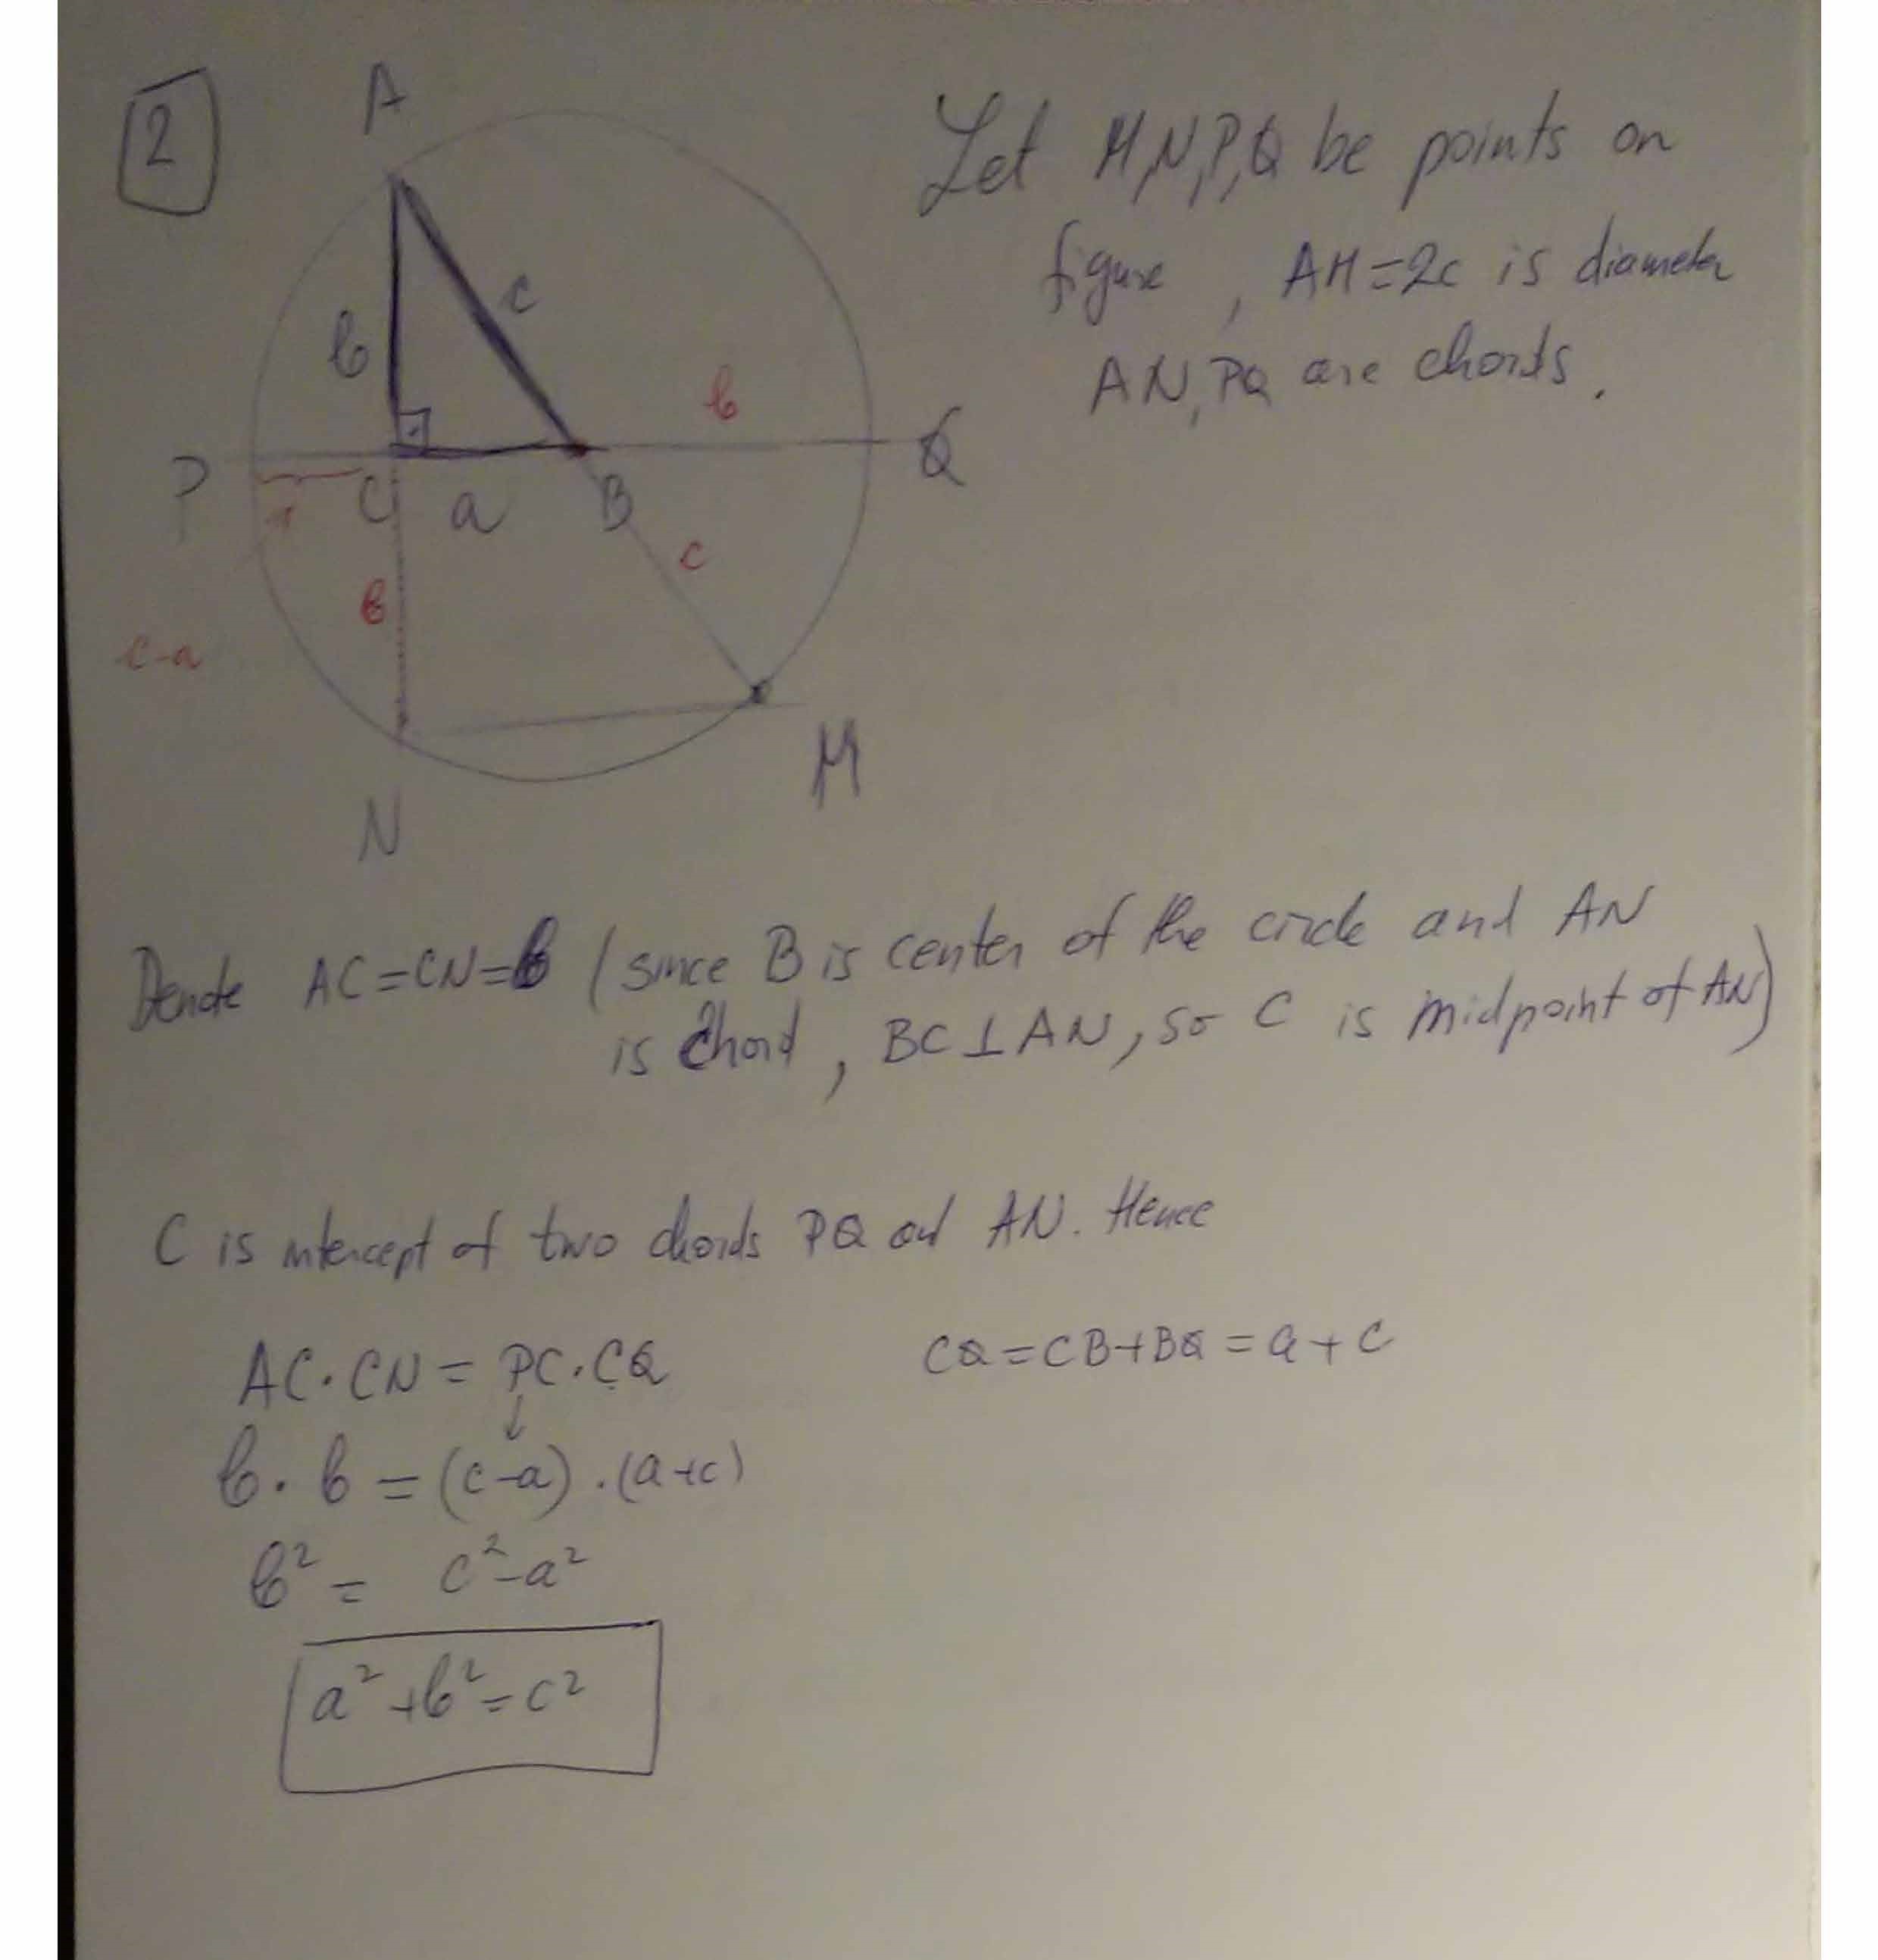 2
A
b
c
b
P
C
a
B
Q
c
b
c-a
M
N
Let M,N,P,Q be points on
figure , AM=2c is diameter
AN, PQ are chords.
Denote AC=CN=b (since B is center of the circle and AN
is chord, BC⊥AN, so C is midpoint of AN)
C is intercept of two chords PQ and AN. Hence
AC·CN = PC·CQ
CQ=CB+BQ=a+c
↓
b·b = (c-a)·(a+c)
b² = c²-a²
a²+b²=c²